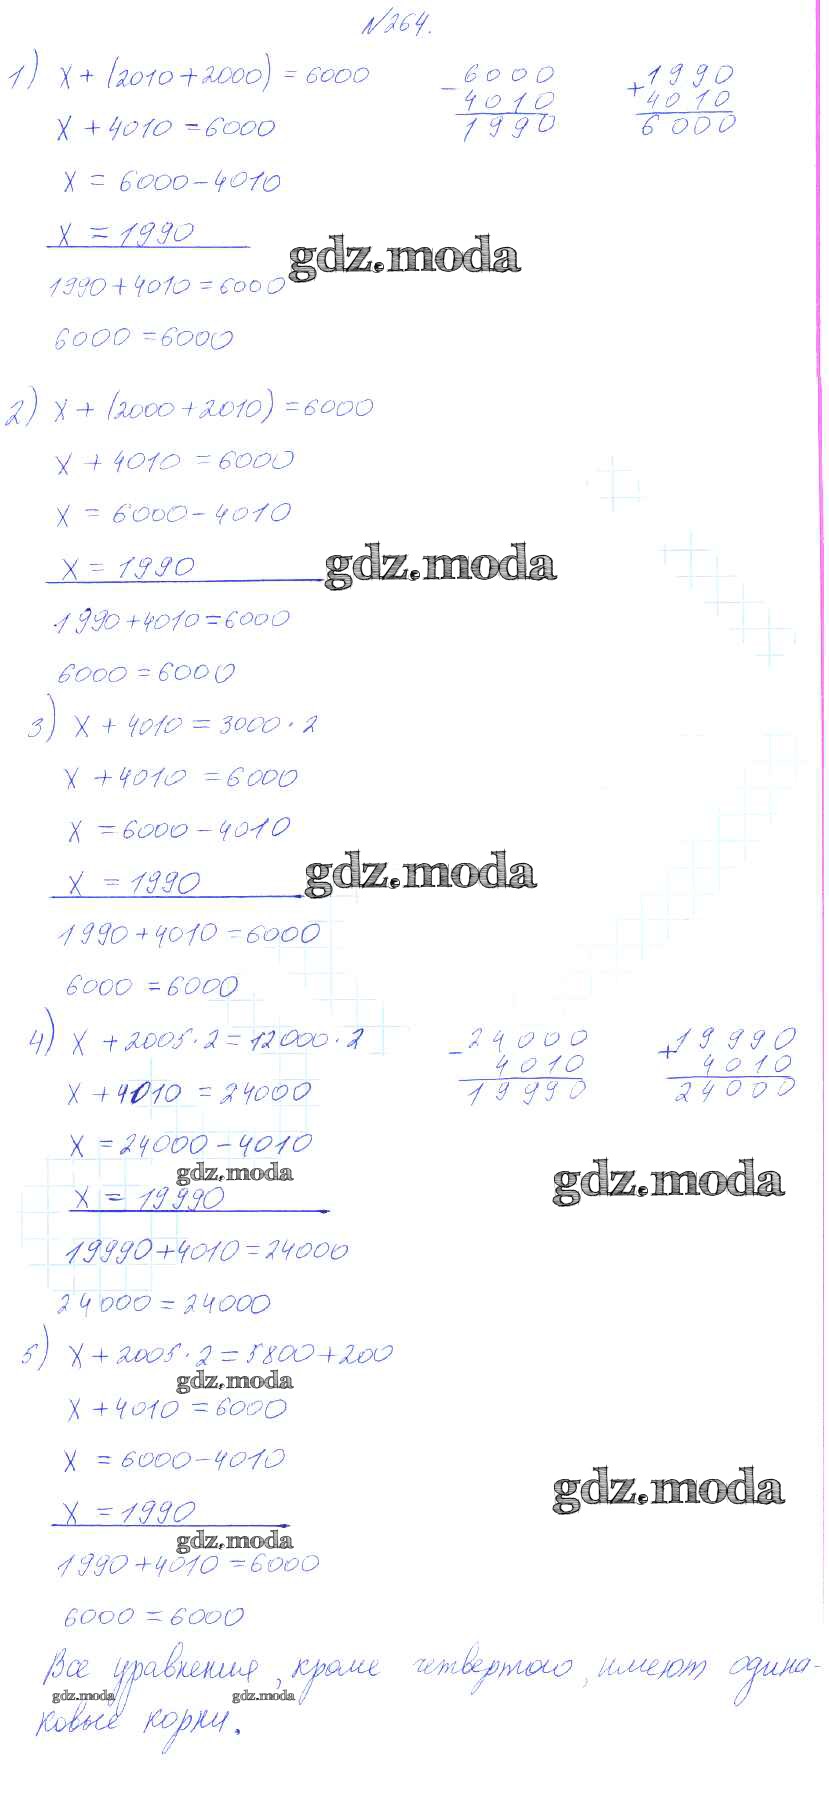 №264.
1) x + (2010 + 2000) = 6000
x + 4010 = 6000
x = 6000 - 4010
x = 1990
1990 + 4010 = 6000
6000 = 6000
- 6000
4010
1990
+ 1990
4010
6000
gdz.moda
2) x + (2000 + 2010) = 6000
x + 4010 = 6000
x = 6000 - 4010
x = 1990
gdz.moda
1990 + 4010 = 6000
6000 = 6000
3) x + 4010 = 3000 · 2
x + 4010 = 6000
x = 6000 - 4010
x = 1990
gdz.moda
1990 + 4010 = 6000
6000 = 6000
4) x + 2005 · 2 = 12000 · 2
x + 4010 = 24000
x = 24000 - 4010
gdz.moda
x = 19990
19990 + 4010 = 24000
24000 = 24000
- 24000
4010
19990
+ 19990
4010
24000
gdz.moda
5) x + 2005 · 2 = 5800 + 200
gdz.moda
x + 4010 = 6000
x = 6000 - 4010
gdz.moda
x = 1990
gdz.moda
1990 + 4010 = 6000
6000 = 6000
Все уравнения, кроме четвертого, имеют одина-
gdz.moda gdz.moda
ковые корни.